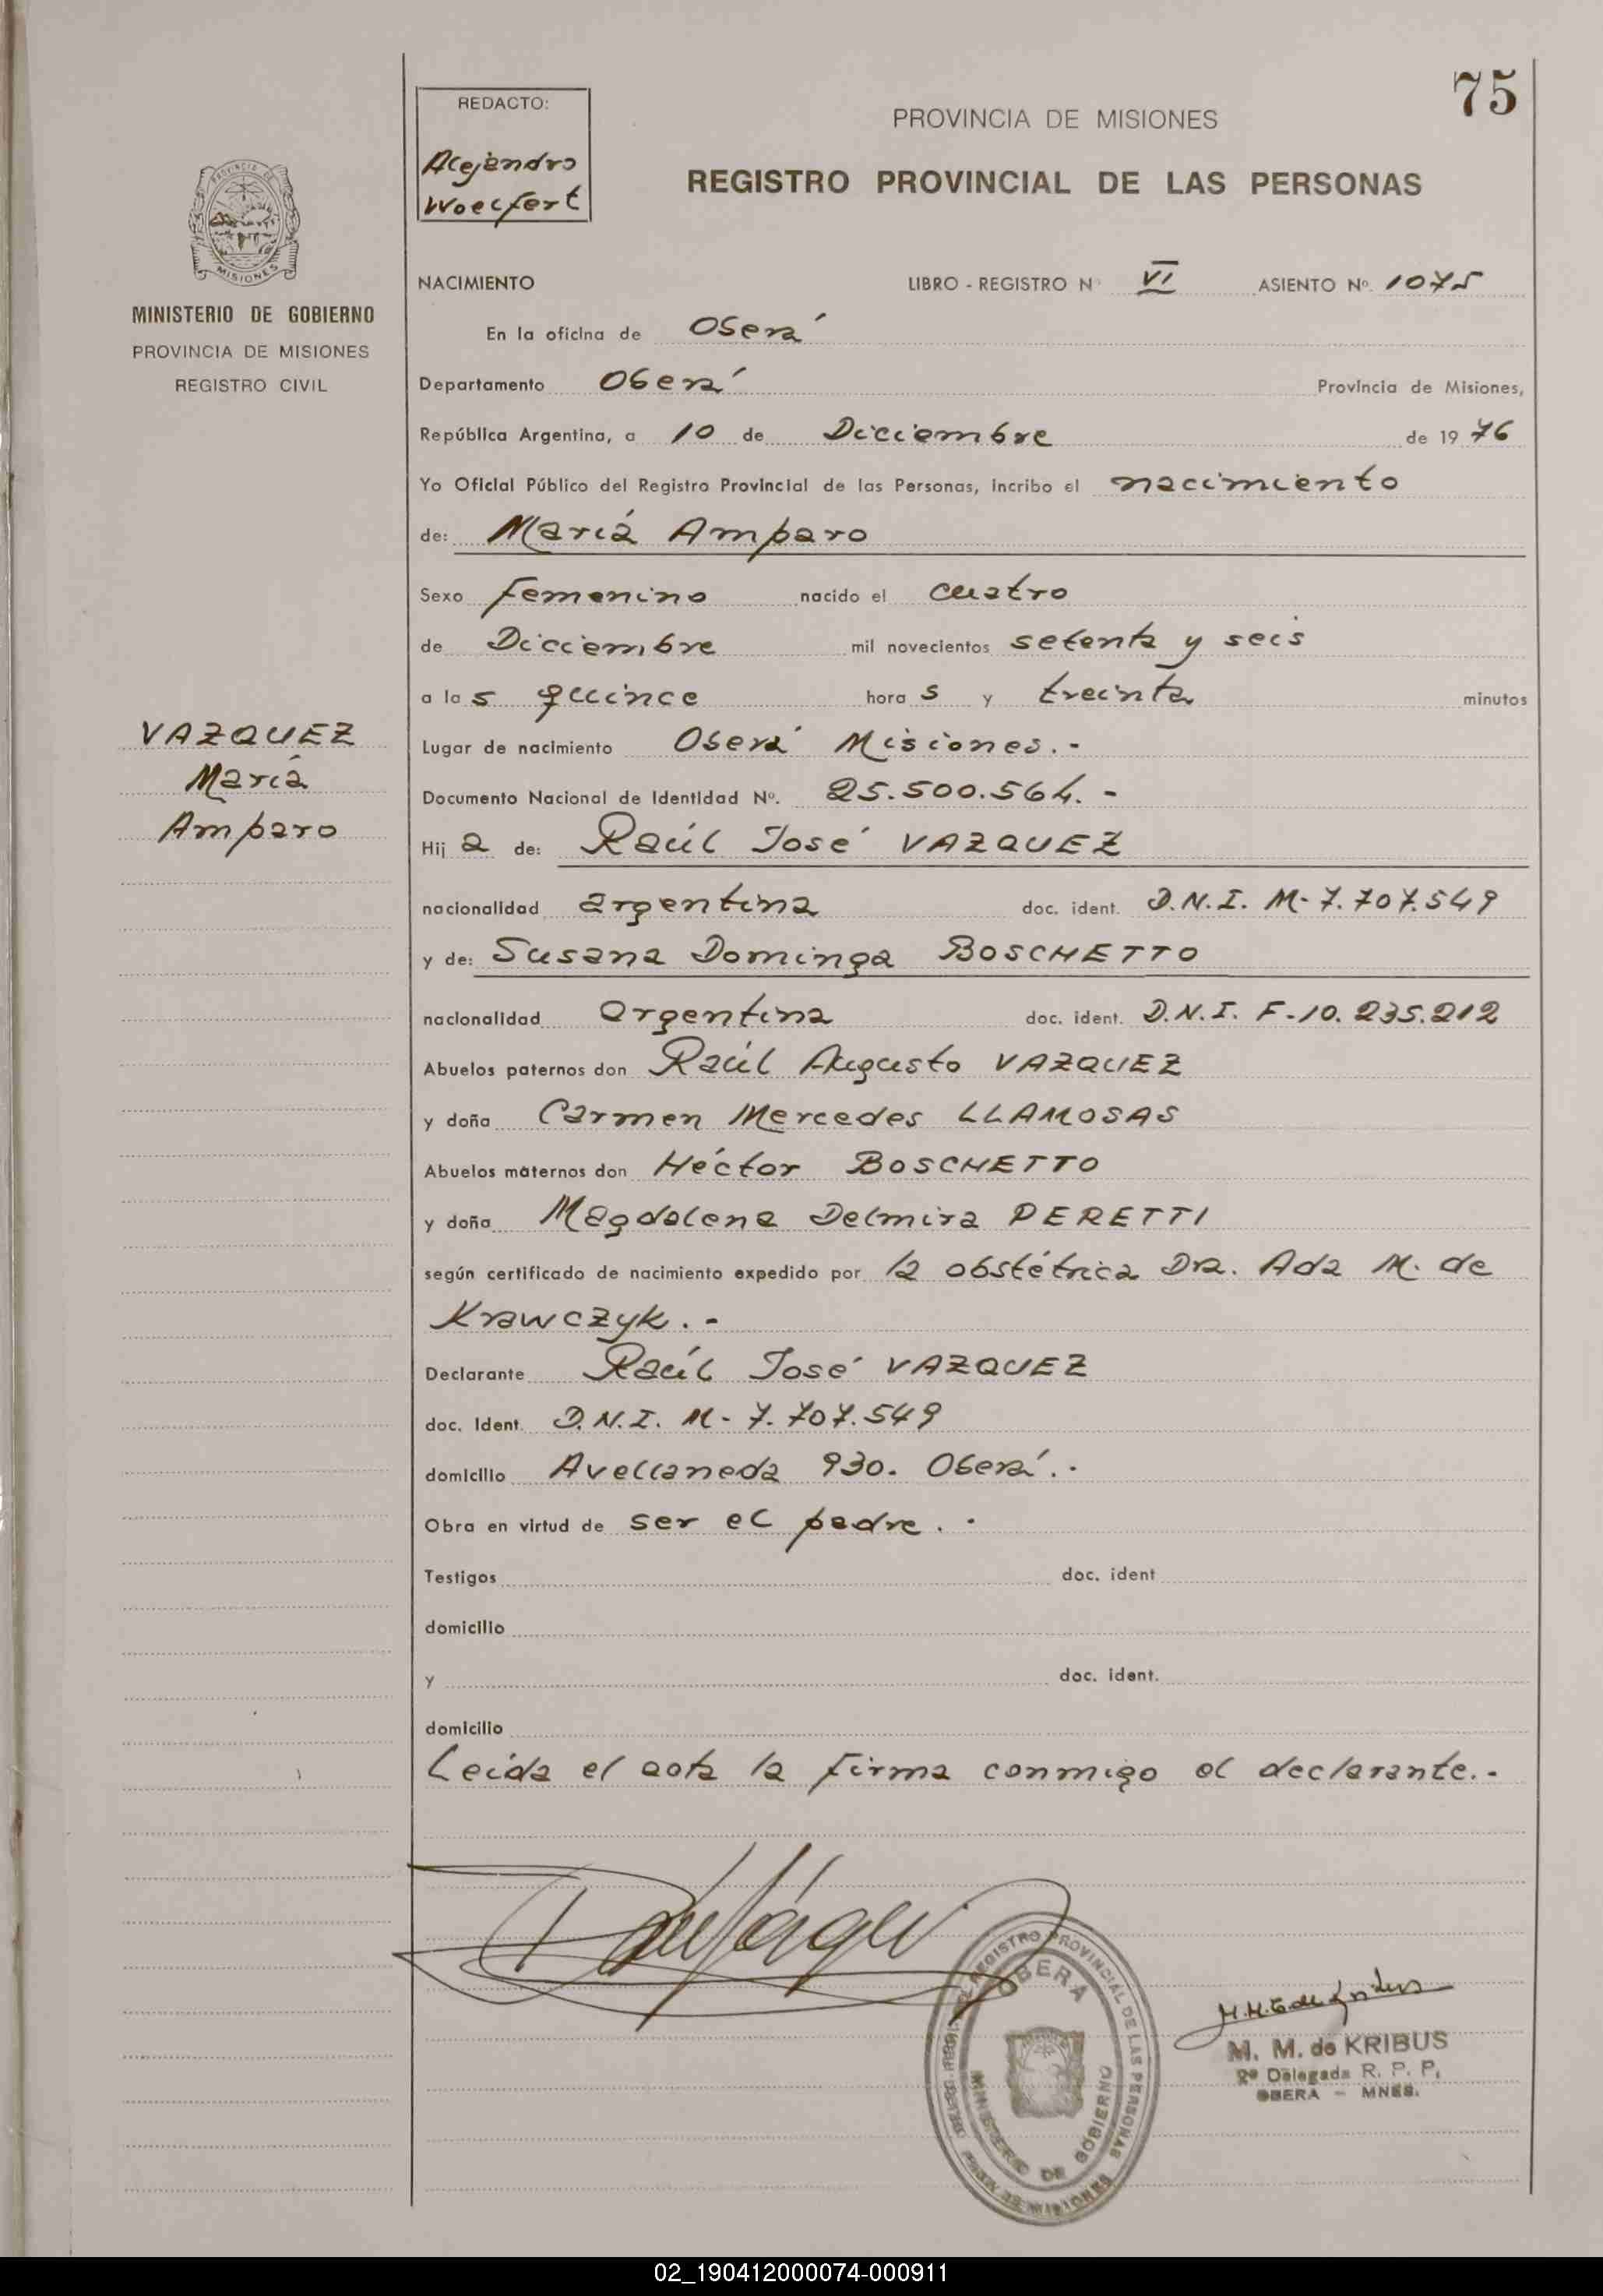 75
REDACTO:
Alejandro
Woelfert
PROVINCIA DE MISIONES
REGISTRO PROVINCIAL DE LAS PERSONAS
MISIONES
MINISTERIO DE GOBIERNO
PROVINCIA DE MISIONES
REGISTRO CIVIL
NACIMIENTO LIBRO - REGISTRO N° VI ASIENTO Nº. 1075
En la oficina de Oberá
Departamento Oberá Provincia de Misiones,
República Argentina, a 10 de Diciembre de 1976
Yo Oficial Público del Registro Provincial de las Personas, incribo el nacimiento
de: María Amparo
Sexo Femenino nacido el cuatro
de Diciembre mil novecientos setenta y seis
a las quince horas y treinta minutos
VAZQUEZ
María
Amparo
Lugar de nacimiento Oberá Misiones.-
Documento Nacional de Identidad Nº. 25.500.564.-
Hija de: Raúl José VAZQUEZ
nacionalidad argentina doc. ident. D.N.I. M-7.707.549
y de: Susana Dominga BOSCHETTO
nacionalidad argentina doc. ident. D.N.I. F-10.235.212
Abuelos paternos don Raúl Augusto VAZQUEZ
y doña Carmen Mercedes LLAMOSAS
Abuelos maternos don Héctor BOSCHETTO
y doña Magdalena Delmira PERETTI
según certificado de nacimiento expedido por la obstétrica Dra. Ada M. de
Krawczyk.-
Declarante Raúl José VAZQUEZ
doc. Ident. D.N.I. M-7.707.549
domicilio Avellaneda 930. Oberá.-
Obra en virtud de ser el padre.-
Testigos doc. ident
domicilio
y doc. ident.
domicilio
Leída el acta la firma conmigo el declarante.-
REGISTRO PROVINCIAL DE LAS PERSONAS
OBERA
MINISTERIO DE GOBIERNO
M. M. de KRIBUS
2ª Delegada R. P. P.
OBERA - MNES.
02_190412000074-000911